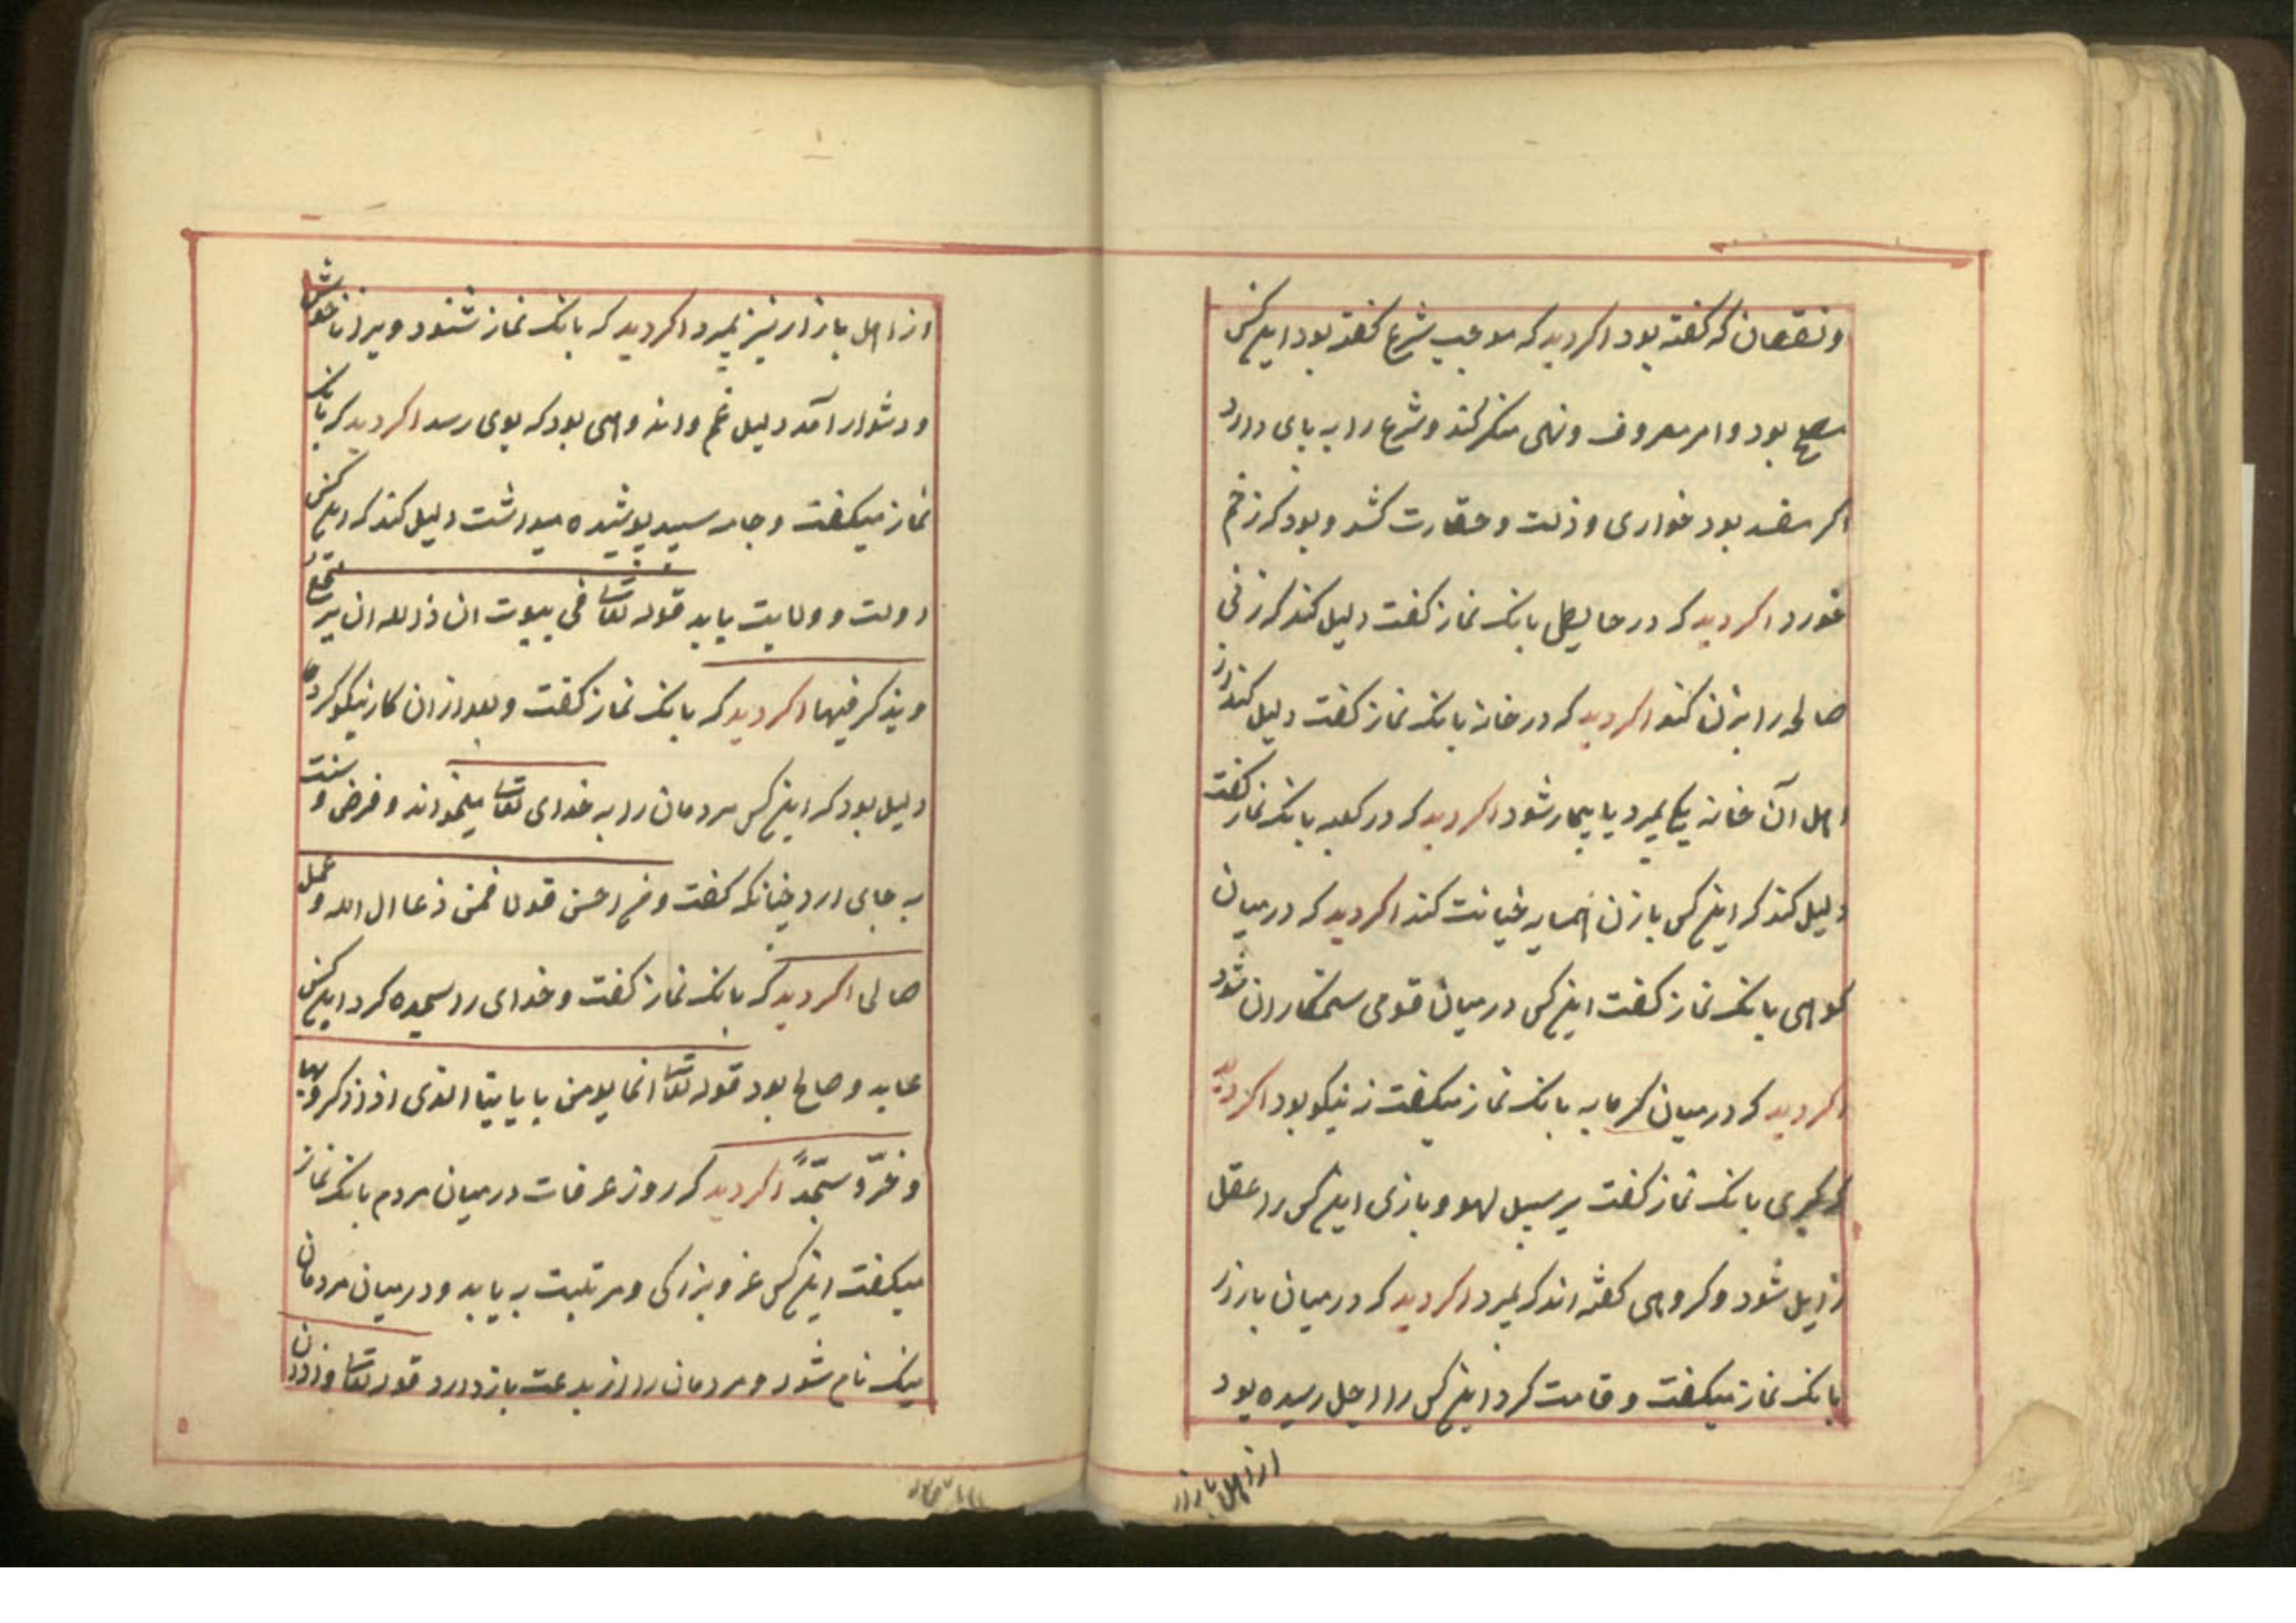 ونقصان که کفته بود اکر دید که موجب شرع کفته بود اینکس
مصلح بود و امر معروف ونهی منکر کند وشرع را به بای دارد
اکر مفسد بود خواری و ذلت وحقارت کشد و بود کز زخم
خورد اکر دید که در حایطی بانک نماز کفت دلیل کند کز زنی
صالحه را بزن کند اکر دید که در خانه بانک نماز کفت دلیل کند از
اهل آن خانه یکی بمیرد یا بیمار شود اکر دید که در کعبه بانک نماز کفت
دلیل کند که اینکس با زن همسایه خیانت کند اکر دید که در میان
کوهی بانک نماز کفت اینکس در میان قومی ستمکاران شود
اکر دید که در میان کرمابه بانک نماز میکفت نه نیکو بود اکر دید
که بانک نماز کفت بر سبیل لهو و بازی اینکس را عقل
زایل شود وکروهی کفته اند که بمیرد اکر دید که در میان بازار
بانک نماز میکفت و قامت کرد اینکس را اجل رسیده بود
از اهل بازار
از اهل بازار نیز بمیرد اکر دید که بانک نماز شنود ویرا ناخوش
ودشوار آمد دلیل غم واندوهی بود که بوی رسد اکر دید که بانک
نماز میکفت وجامه سپید پوشیده میداشت دلیل کند که اینکس
دولت وولایت یابد قوله تعا فی بیوت اذن الله ان یرفع
ویذکر فیها اکر دید که بانک نماز کفت وبعد از ان کار نیکو کرد
دلیل بود که اینکس مردمان را به خدای تعا میخواند وفرض و سنت
به جای ارد چنانکه کفت ومن احسن قولا فمن دعا ال الله و عمل
صالحا اکر دید که بانک نماز کفت وخدای را سجده کرد اینکس
عابد وصالح بود قوله تعا انما یومن بایاتنا الذی اذ ذکروبها
وخرّوسجّداً اکر دید که روز عرفات در میان مردم بانک نماز
میکفت اینکس عز وبزرکی ومرتبت به یابد ودر میان مردمان
نیک نام شود ومردمان را از بدعت باز دارد قوله تعا واذان